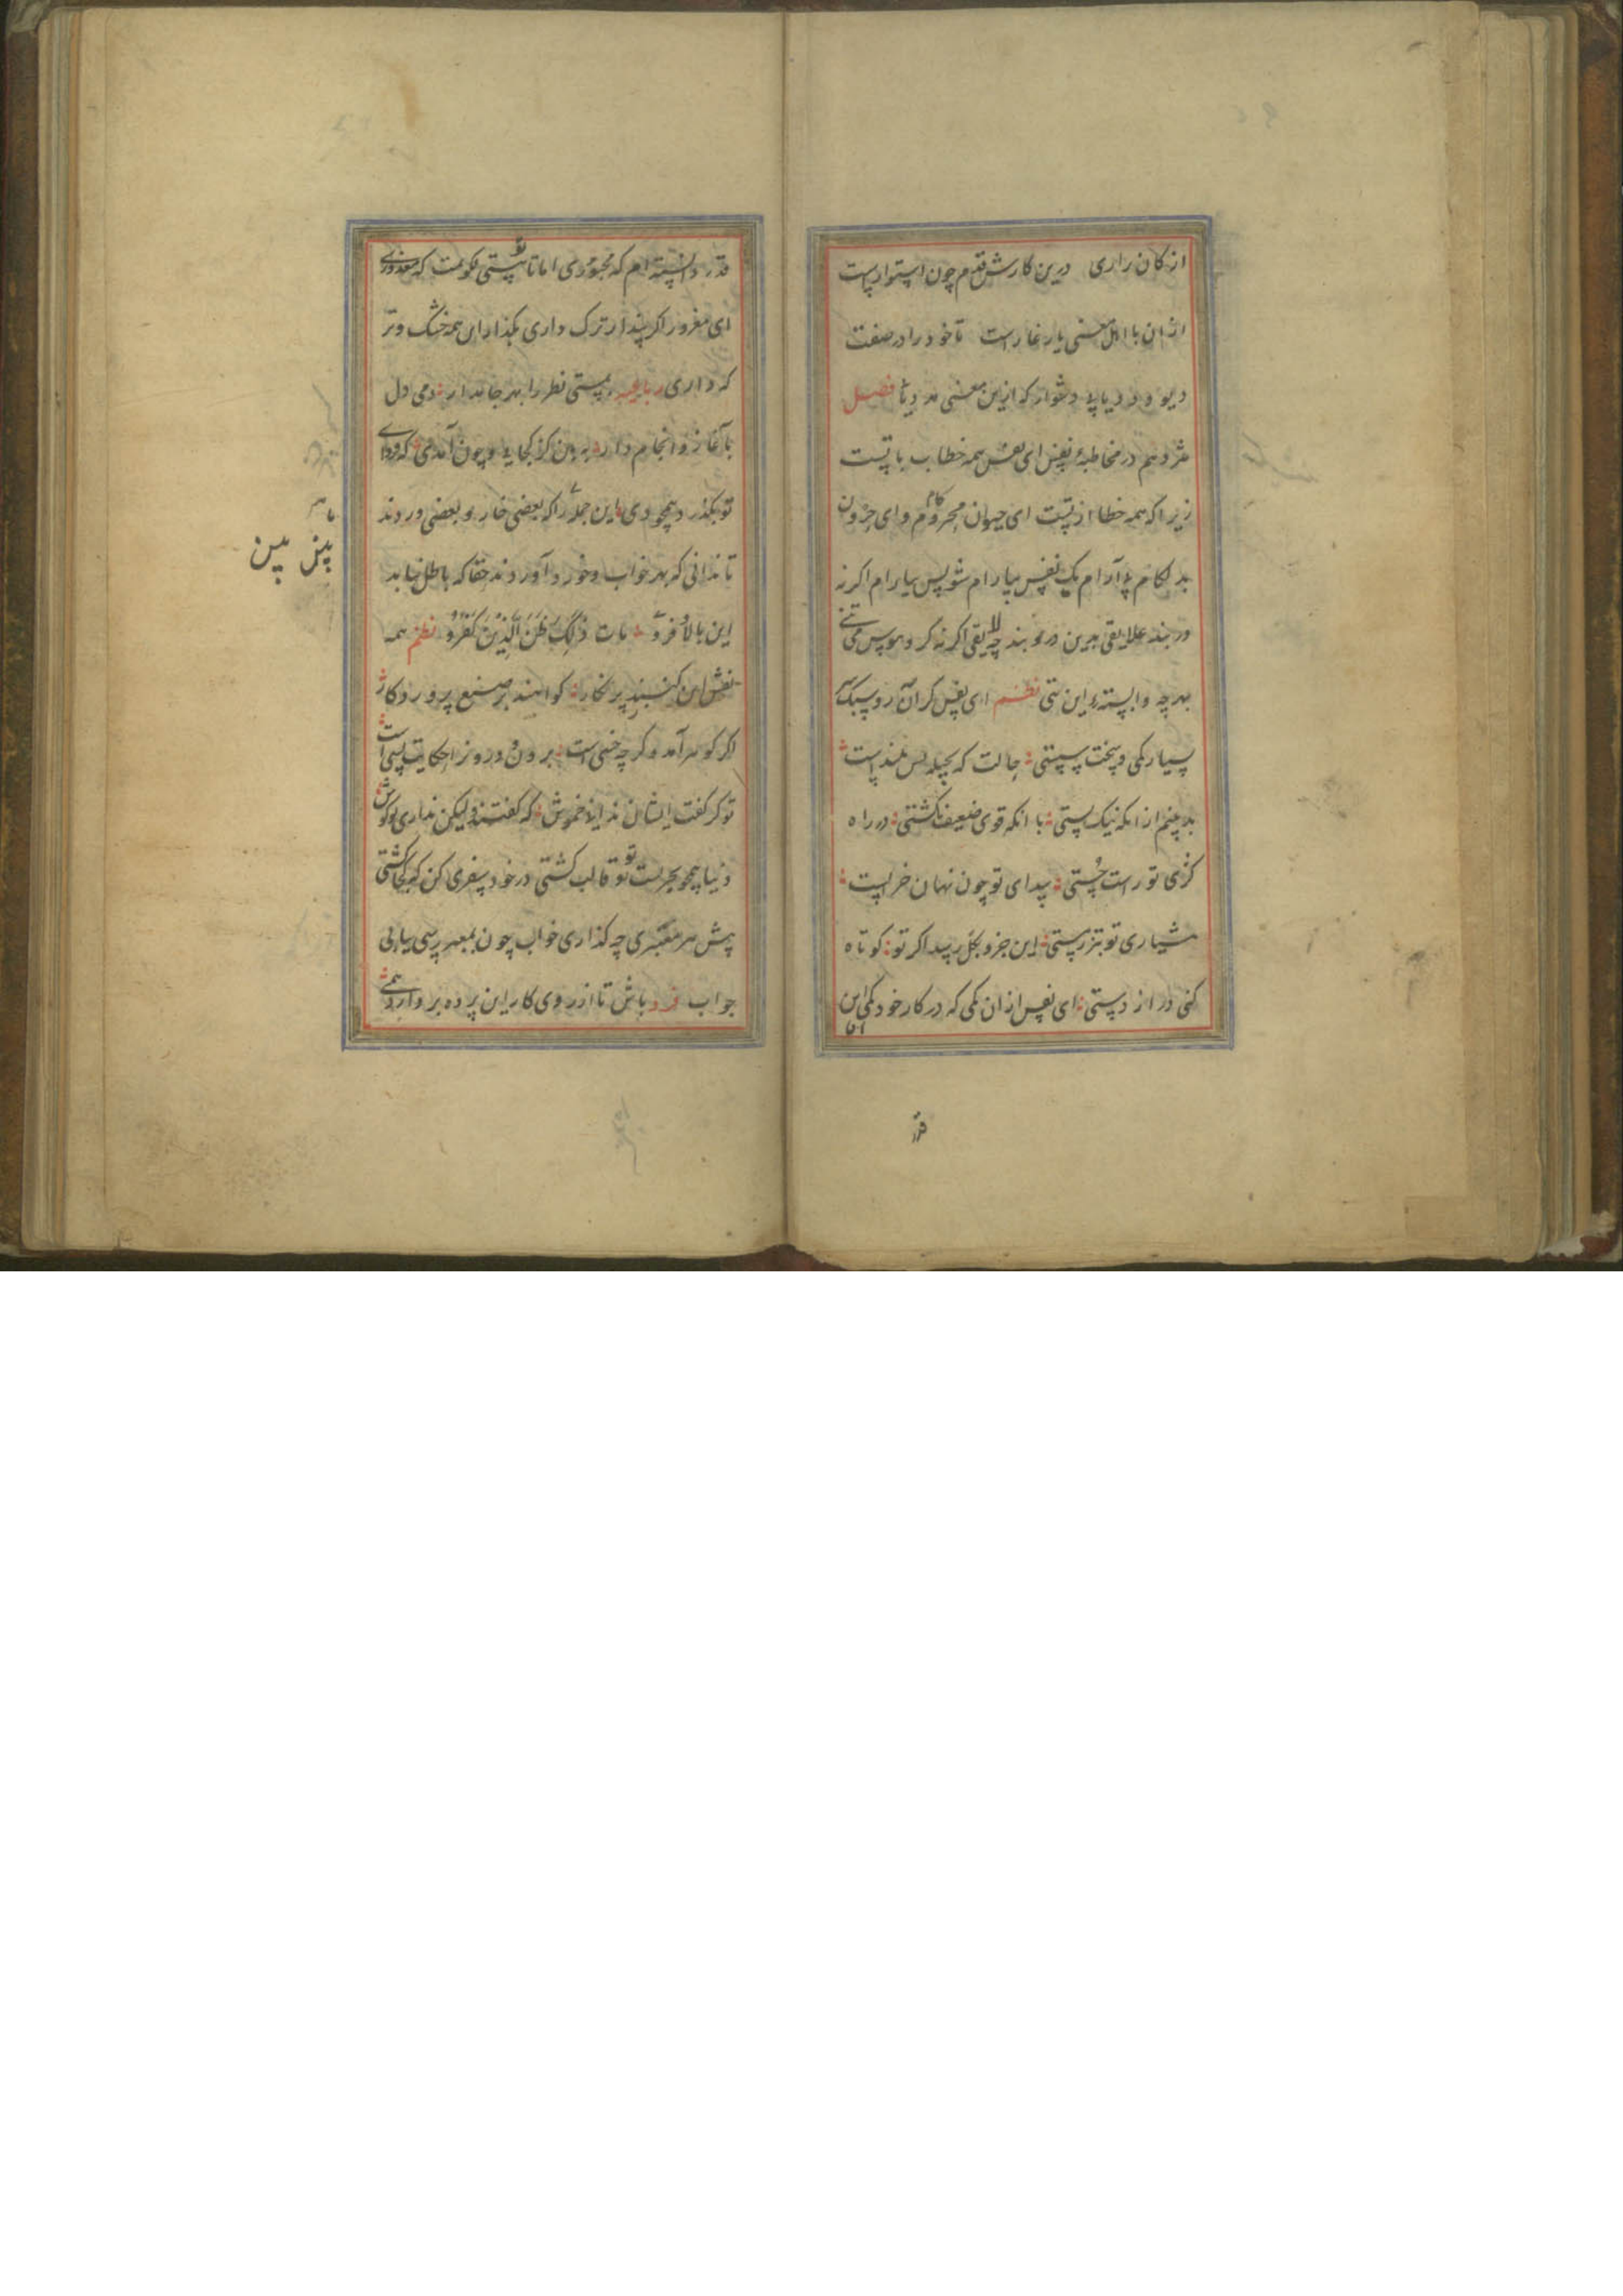 از کان رازی درین کارش قدم چون استوارست
ازان با اهل معنی یار غارست تا خود را در صفت
دیو و دد نیابی دشوار که ازین معنی مدد یابی فصل
هژدهم در مخاطبهٔ نفس ای نفس همه خطاب با تست
زیرا که همه خطا از تست ای حیوان محروم کام وای حرون
بد لگام بی آرام یک نفس بیارام شو پس بیارام اگر نه
در بند علایقی بدین در و بند چه لایقی اگر نه گرد هوس می تنی
بهر چه وابستهٔ این تنی نظم ای نفس گران رو سبک سر
بسیار کمی و سخت سستی جالت که بحیله بس بلندست
بد بینم از آنکه نیک پستی با آنکه قوی ضعیف گشتی در راه
کژی تو راست چستی پیدای تو چون نهان خرابست
هشیاری تو بتر ز مستی این جزو بکل رسد اگر تو کوتاه
کنی دراز دستی ای نفس ازان کمی که در کار خود کمی این
اما
قدر
قدر دانسته ام که مجبوری اما تا تو هستی نگویمت که معذوری
ای مغرور اگر پندار ترک داری بگذار این همه خشک و تر
که داری رباعیه بمستی نظر را بهر جا مدار دمی دل
بآغاز و انجام دار به بین کز کجایی و چون آمدی که
تو بگذر دمی این جمله را که بعضی خار و بعضی وردند
تا ندانی که بهر خواب و خورد آوردند حقا که باطل نیاید
این بالا و فرود مات ذلک ظن الذین کفروا نظم همه
نقش این گنبد پر نگار گواهند بر صنع پروردگار
اگر گوهر آمد و گر چه خسی است برون و درونرا حکایت بسی است
تو گر گفت ایشان ندانی خموش که گفتند ولیکن نداری تو گوش
دنیا همچو بحریست تو قالب کشتی در خود سفری کن که کجا گشتی
پیش هر معبری چه گذاری خواب چون بمعبر رسی بیابی
جواب فرد باش تا از روی کار این پرده بردارد همی